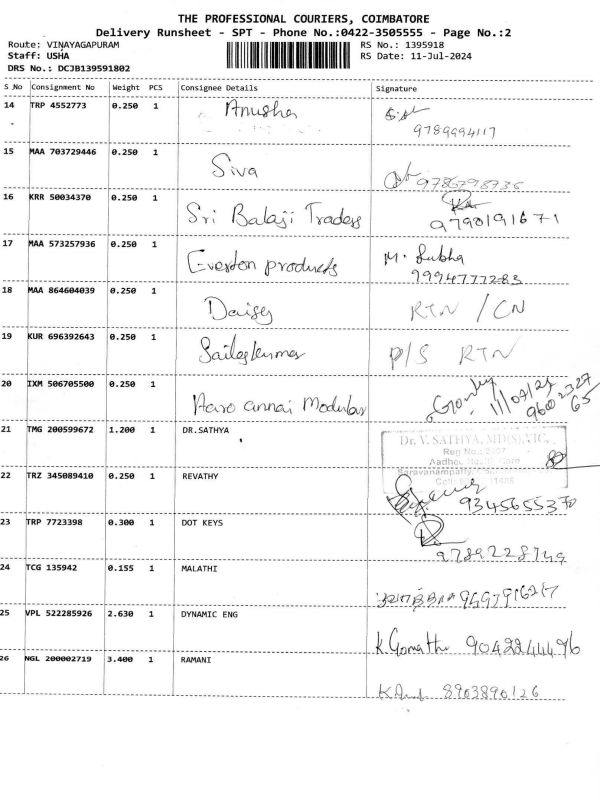 THE PROFESSIONAL COURIERS, COIMBATORE
Delivery Runsheet - SPT - Phone No.:0422-3505555 - Page No.:2
Route: VINAYAGAPURAM RS No.: 1395918
Staff: USHA RS Date: 11-Jul-2024
DRS No.: DCJB139591802
S_No Consignment No Weight PCS Consignee Details Signature
14 TRP 4552773 0.250 1 Anusha
9789994117
15 MAA 703729446 0.250 1 Siva
9786798735
16 KRR 50034370 0.250 1 Sri Balaji Traders
9790191671
17 MAA 573257936 0.250 1 Everton products M. Subha
9994777283
18 MAA 864604039 0.250 1 Daisy RTN / CN
19 KUR 696392643 0.250 1 Saileshkumar P/S RTN
20 IXM 506705500 0.250 1 Aaro annai Modular 11/07/24
96002327
65
21 TMG 200599672 1.200 1 DR.SATHYA Dr. V. SATHYA, MD(S), VIC.,
Reg No.: 2307
Saravanampatty,
22 TRZ 345089410 0.250 1 REVATHY 9345655370
23 TRP 7723398 0.300 1 DOT KEYS
9789228749
24 TCG 135942 0.155 1 MALATHI
25 VPL 522285926 2.630 1 DYNAMIC ENG
K. Gomathi 9042244496
26 NGL 200002719 3.400 1 RAMANI
8903890126